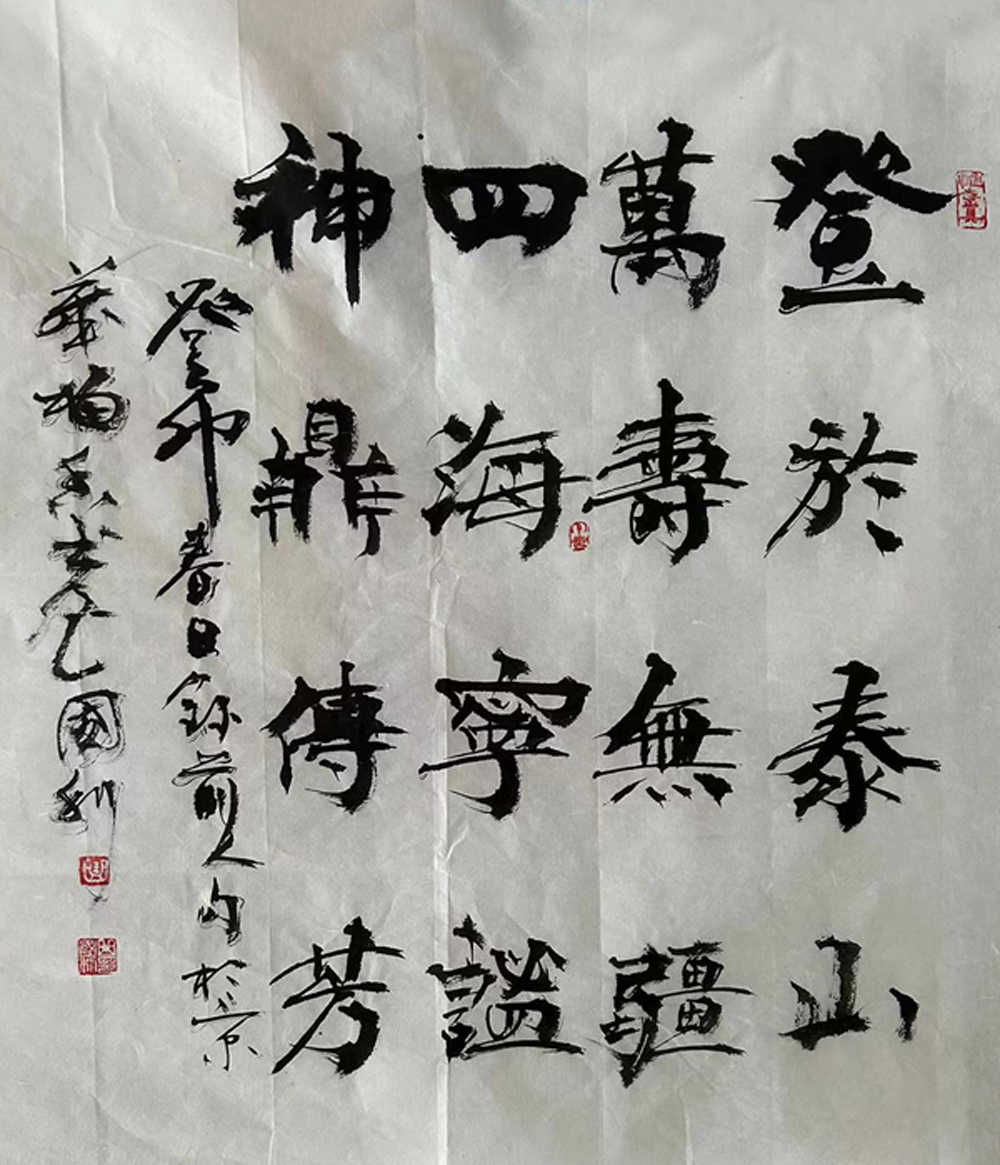 登於泰山
萬壽無疆
四海寧謐
神鼎傳芳
癸卯春日錄前人句於京
華梅香書屋國利